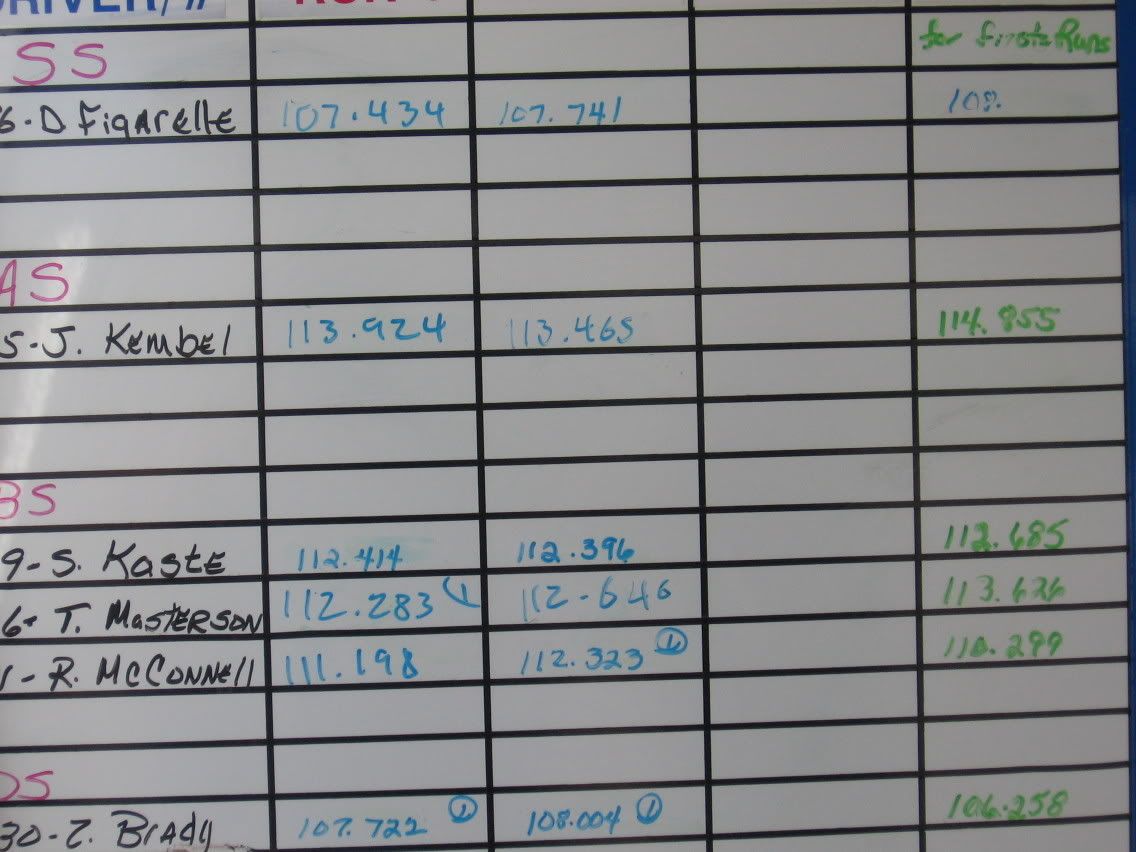 DRIVER/#
SS for first Runs
6-D Figarelle 107.434 107.741 108.
AS
5-J. Kembel 113.924 113.465 114.855
BS
9-S. Kaste 112.414 112.396 112.685
6- T. Masterson 112.283 112-646 113.626
1-R. McConnell 111.198 112.323 1 110.299
DS
30-Z. Brady 107.722 1 108.004 1 106.258